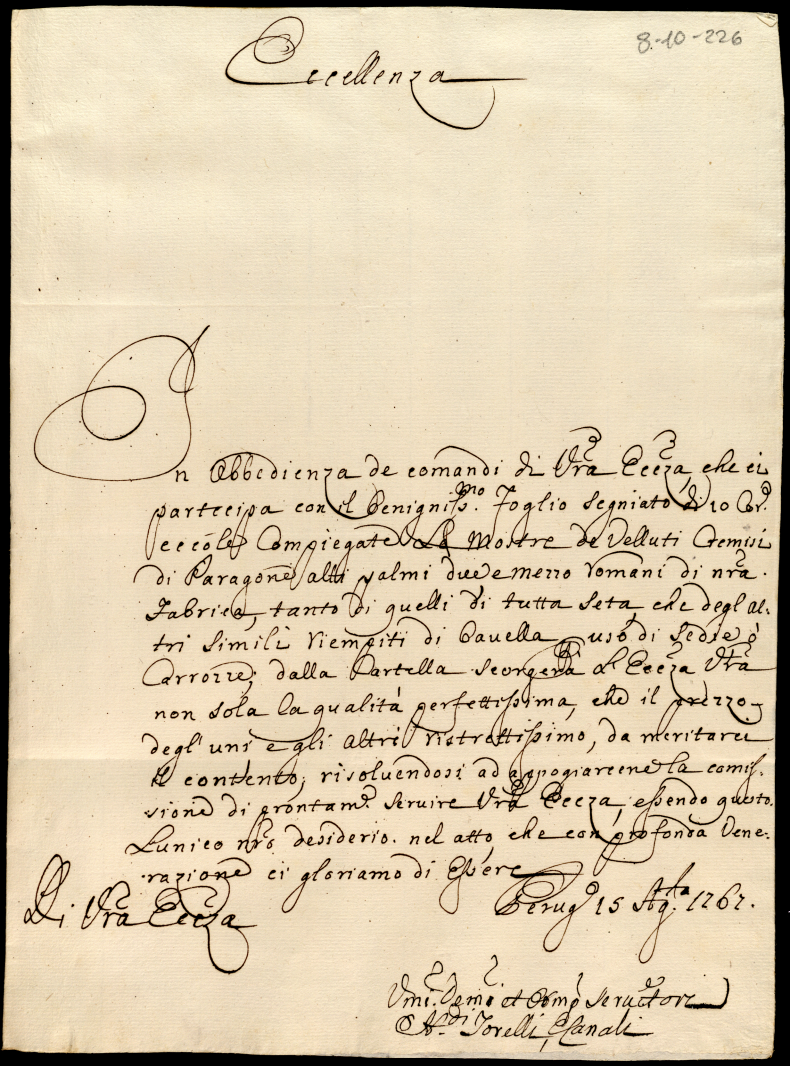 8-10-226
Eccellenza
In Obbedienza de comandi di Vrã Eccza, che ci
partecipa con il Benigniss.mo Foglio segniato di 10 Cor.e
eccole Compiegate Le Mostre de Velluti Cremisi
di Paragone alti palmi due e mezzo Romani di nrã
Fabrica, tanto di quelli di tutta seta, che degl'al-
tri simili riempiti di Bavella uso di Sedie ò
Carrozze; dalla Cartella scorgerà L'Eccza Vrã
non sola la qualità perfettissima, che il prezzo
degl'uni e gli altri ristrettissimo, da meritarci
il contento, risoluendosi ad appogiarcene la comis-
sione di prontam.e seruire Vrã Eccza, essendo questo
Lunico nrõ desiderio. nel atto, che con profonda Vene-
razione ci gloriamo di Essere
Di Vrã Eccza
Perugia 15 Ag.to 1767.
Vmi. Demi et Obmi Seruitori
Torelli, e Canali